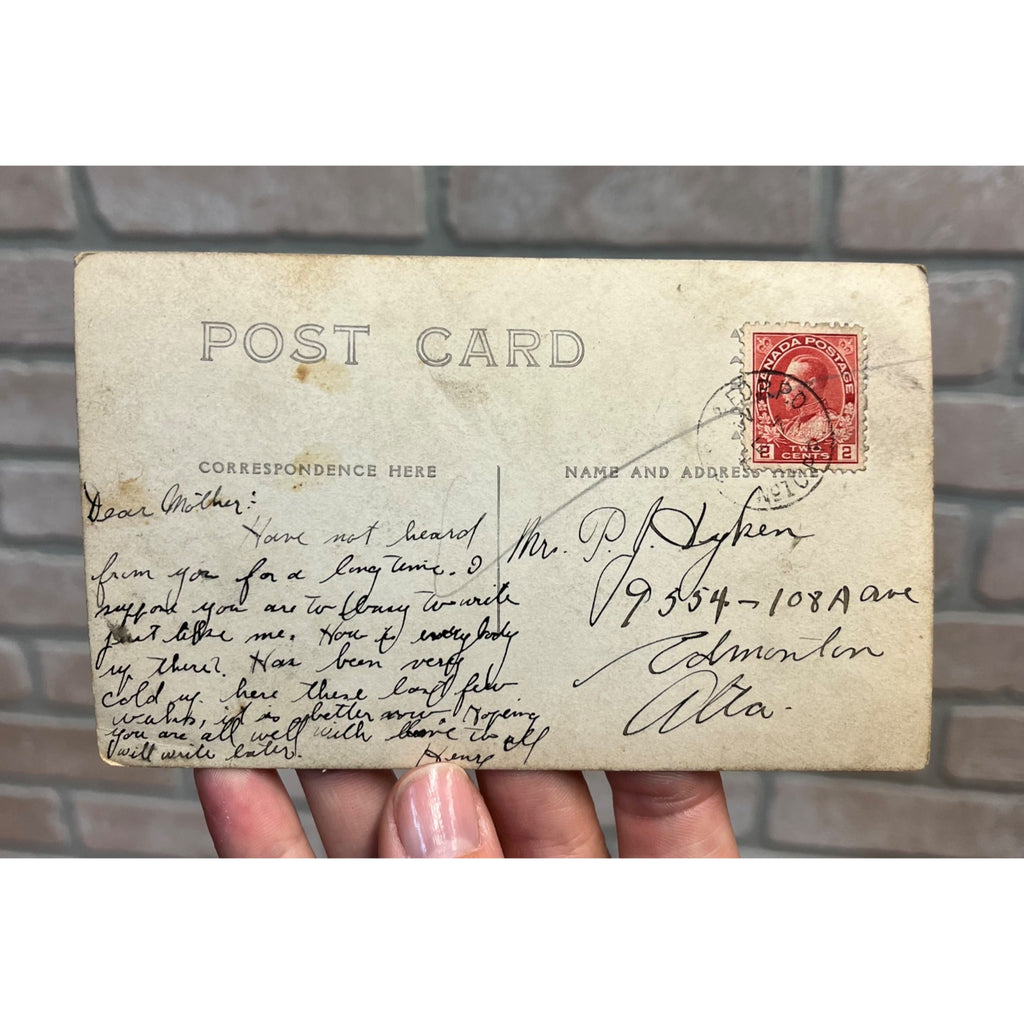 POST CARD
CANADA POSTAGE
2 TWO CENTS 2
R.P.O
CORRESPONDENCE HERE
NAME AND ADDRESS HERE
Dear Mother:
Have not heard
from you for a long time. I
suppose you are to busy to write
just like me. How is everybody
up there? Has been very
cold up here these last few
weeks, it is better now. Hoping
you are all well with love to all
will write later.
Henry
Mrs. P. J. Hyken
9554-108A ave
Edmonton
Alta.